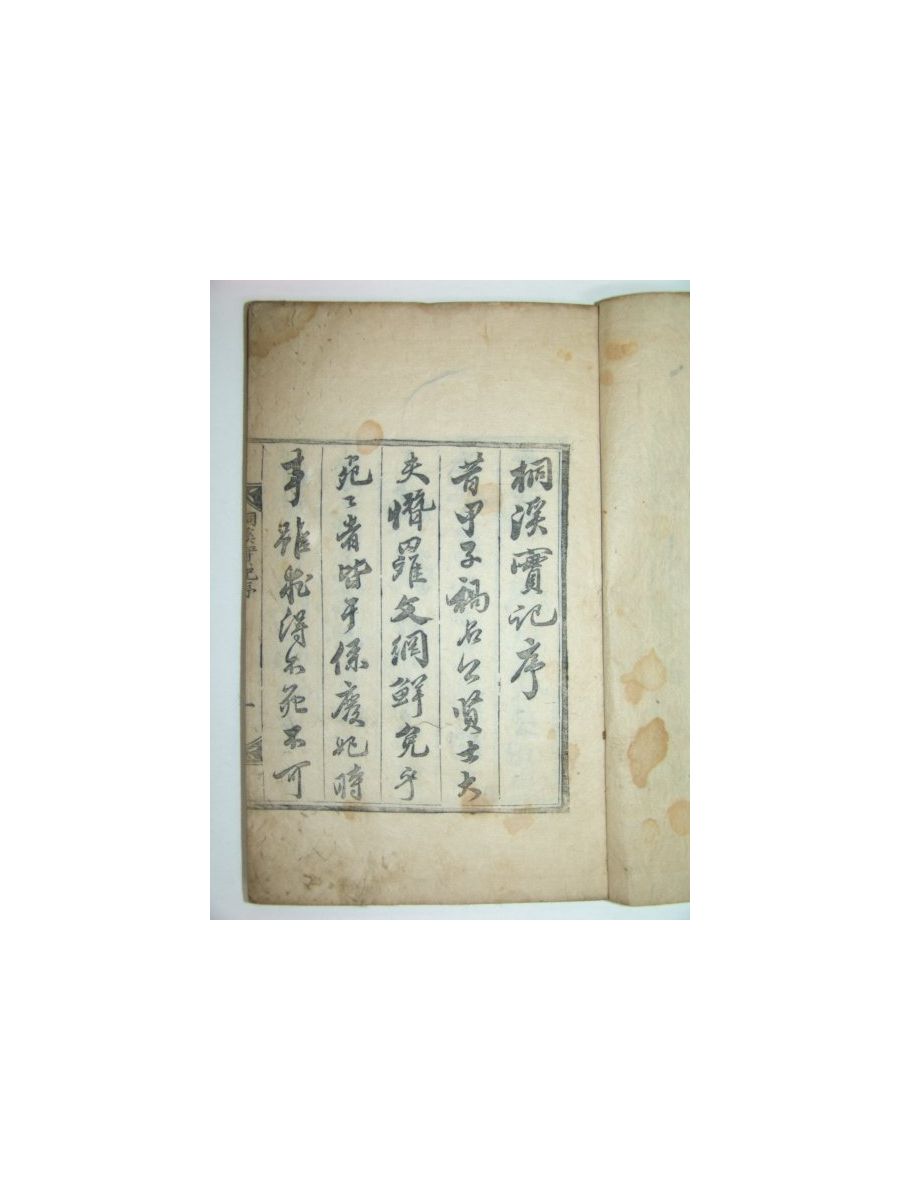 桐溪實記序
昔甲子禍名公賢士大
夫慴羅文網鮮免乎
死〻者皆干係廢妃時
事雖欲得不死不可
桐溪實記序
一